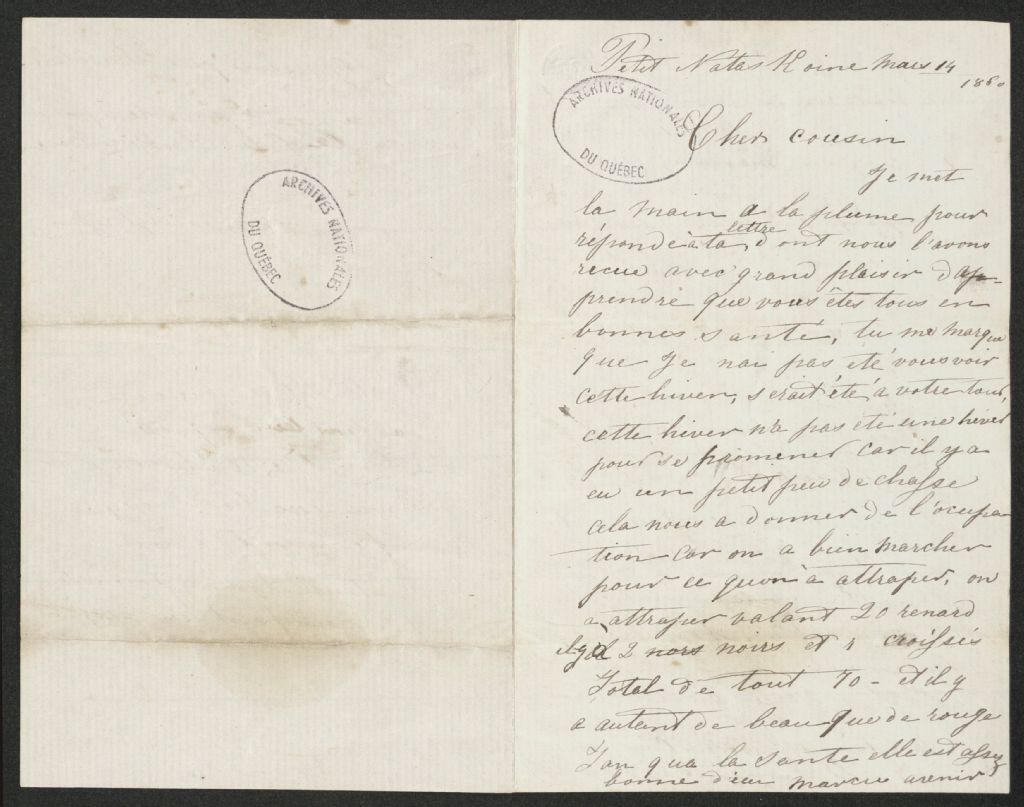 ARCHIVES NATIONALES
DU QUÉBEC
Petit Nataskoine Mars 14
1880
ARCHIVES NATIONALES
DU QUÉBEC
Cher cousin
Je met
la main a la plume pour
répondé à ta lettre dont nous l'avons
recue avec grand plaisir dap-
prendre que vous êtes tous en
bonnes santé, tu me marque
que Je nai pas été vous voir
cette hiver, serait été a votre tour,
cette hiver n'a pas été une hiver
pour se promener car il y a
eu un petit peu de chasse
cela nous a donner de l'ocupa-
tion car on a bien marcher
pour ce quon à attraper, on
a attraper valant 20 renard
il y a 2 noirs et 1 croissés
Total de tout 70 - et il y
a autant de beau que de rouge
qua la sante elle est assez
bonne